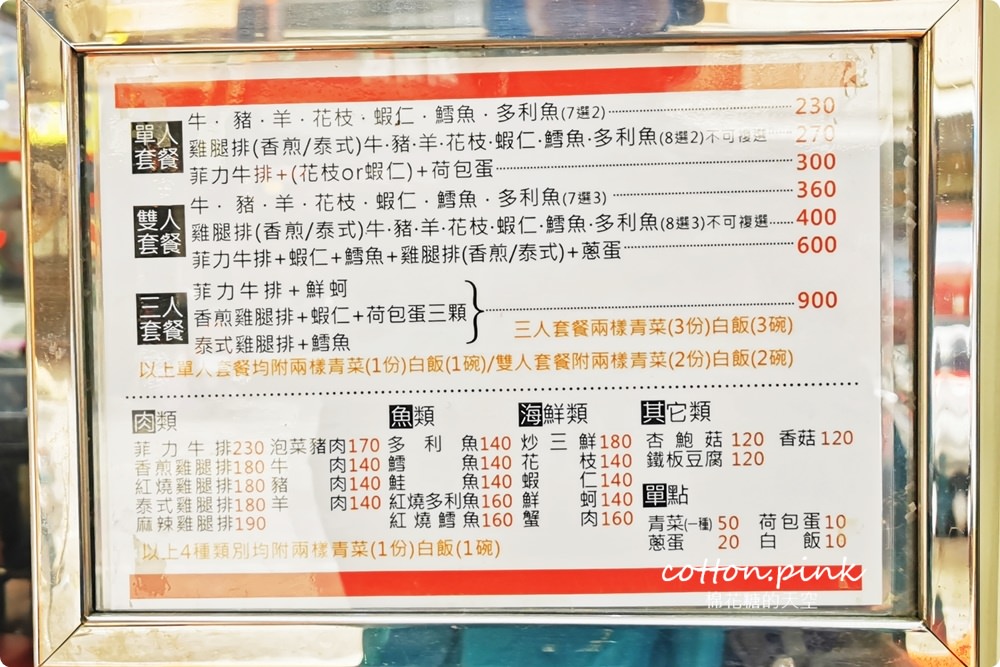 單人套餐
牛．豬．羊．花枝．蝦仁．鱈魚．多利魚(7選2) 230
雞腿排(香煎/泰式)牛·豬·羊·花枝·蝦仁·鱈魚·多利魚(8選2)不可複選 270
菲力牛排+(花枝or蝦仁)+荷包蛋 300
雙人套餐
牛．豬．羊．花枝．蝦仁．鱈魚．多利魚(7選3) 360
雞腿排(香煎/泰式)牛·豬·羊·花枝·蝦仁·鱈魚·多利魚(8選3)不可複選 400
菲力牛排+蝦仁+鱈魚+雞腿排(香煎/泰式)+蔥蛋 600
三人套餐
菲力牛排+鮮蚵
香煎雞腿排+蝦仁+荷包蛋三顆 900
泰式雞腿排+鱈魚
三人套餐兩樣青菜(3份)白飯(3碗)
以上單人套餐均附兩樣青菜(1份)白飯(1碗)/雙人套餐附兩樣青菜(2份)白飯(2碗)
肉類
菲力牛排230 泡菜豬肉170
香煎雞腿排180 牛肉140
紅燒雞腿排180 豬肉140
泰式雞腿排180 羊肉140
麻辣雞腿排190
魚類
多利魚140
鱈魚140
鮭魚140
紅燒多利魚160
紅燒鱈魚160
海鮮類
炒三鮮180
花枝140
蝦仁140
鮮蚵140
蟹肉160
其它類
杏鮑菇 120 香菇 120
鐵板豆腐 120
單點
青菜(一種) 50 荷包蛋10
蔥蛋 20 白飯10
以上4種類別均附兩樣青菜(1份)白飯(1碗)
cotton.pink
棉花糖的天空